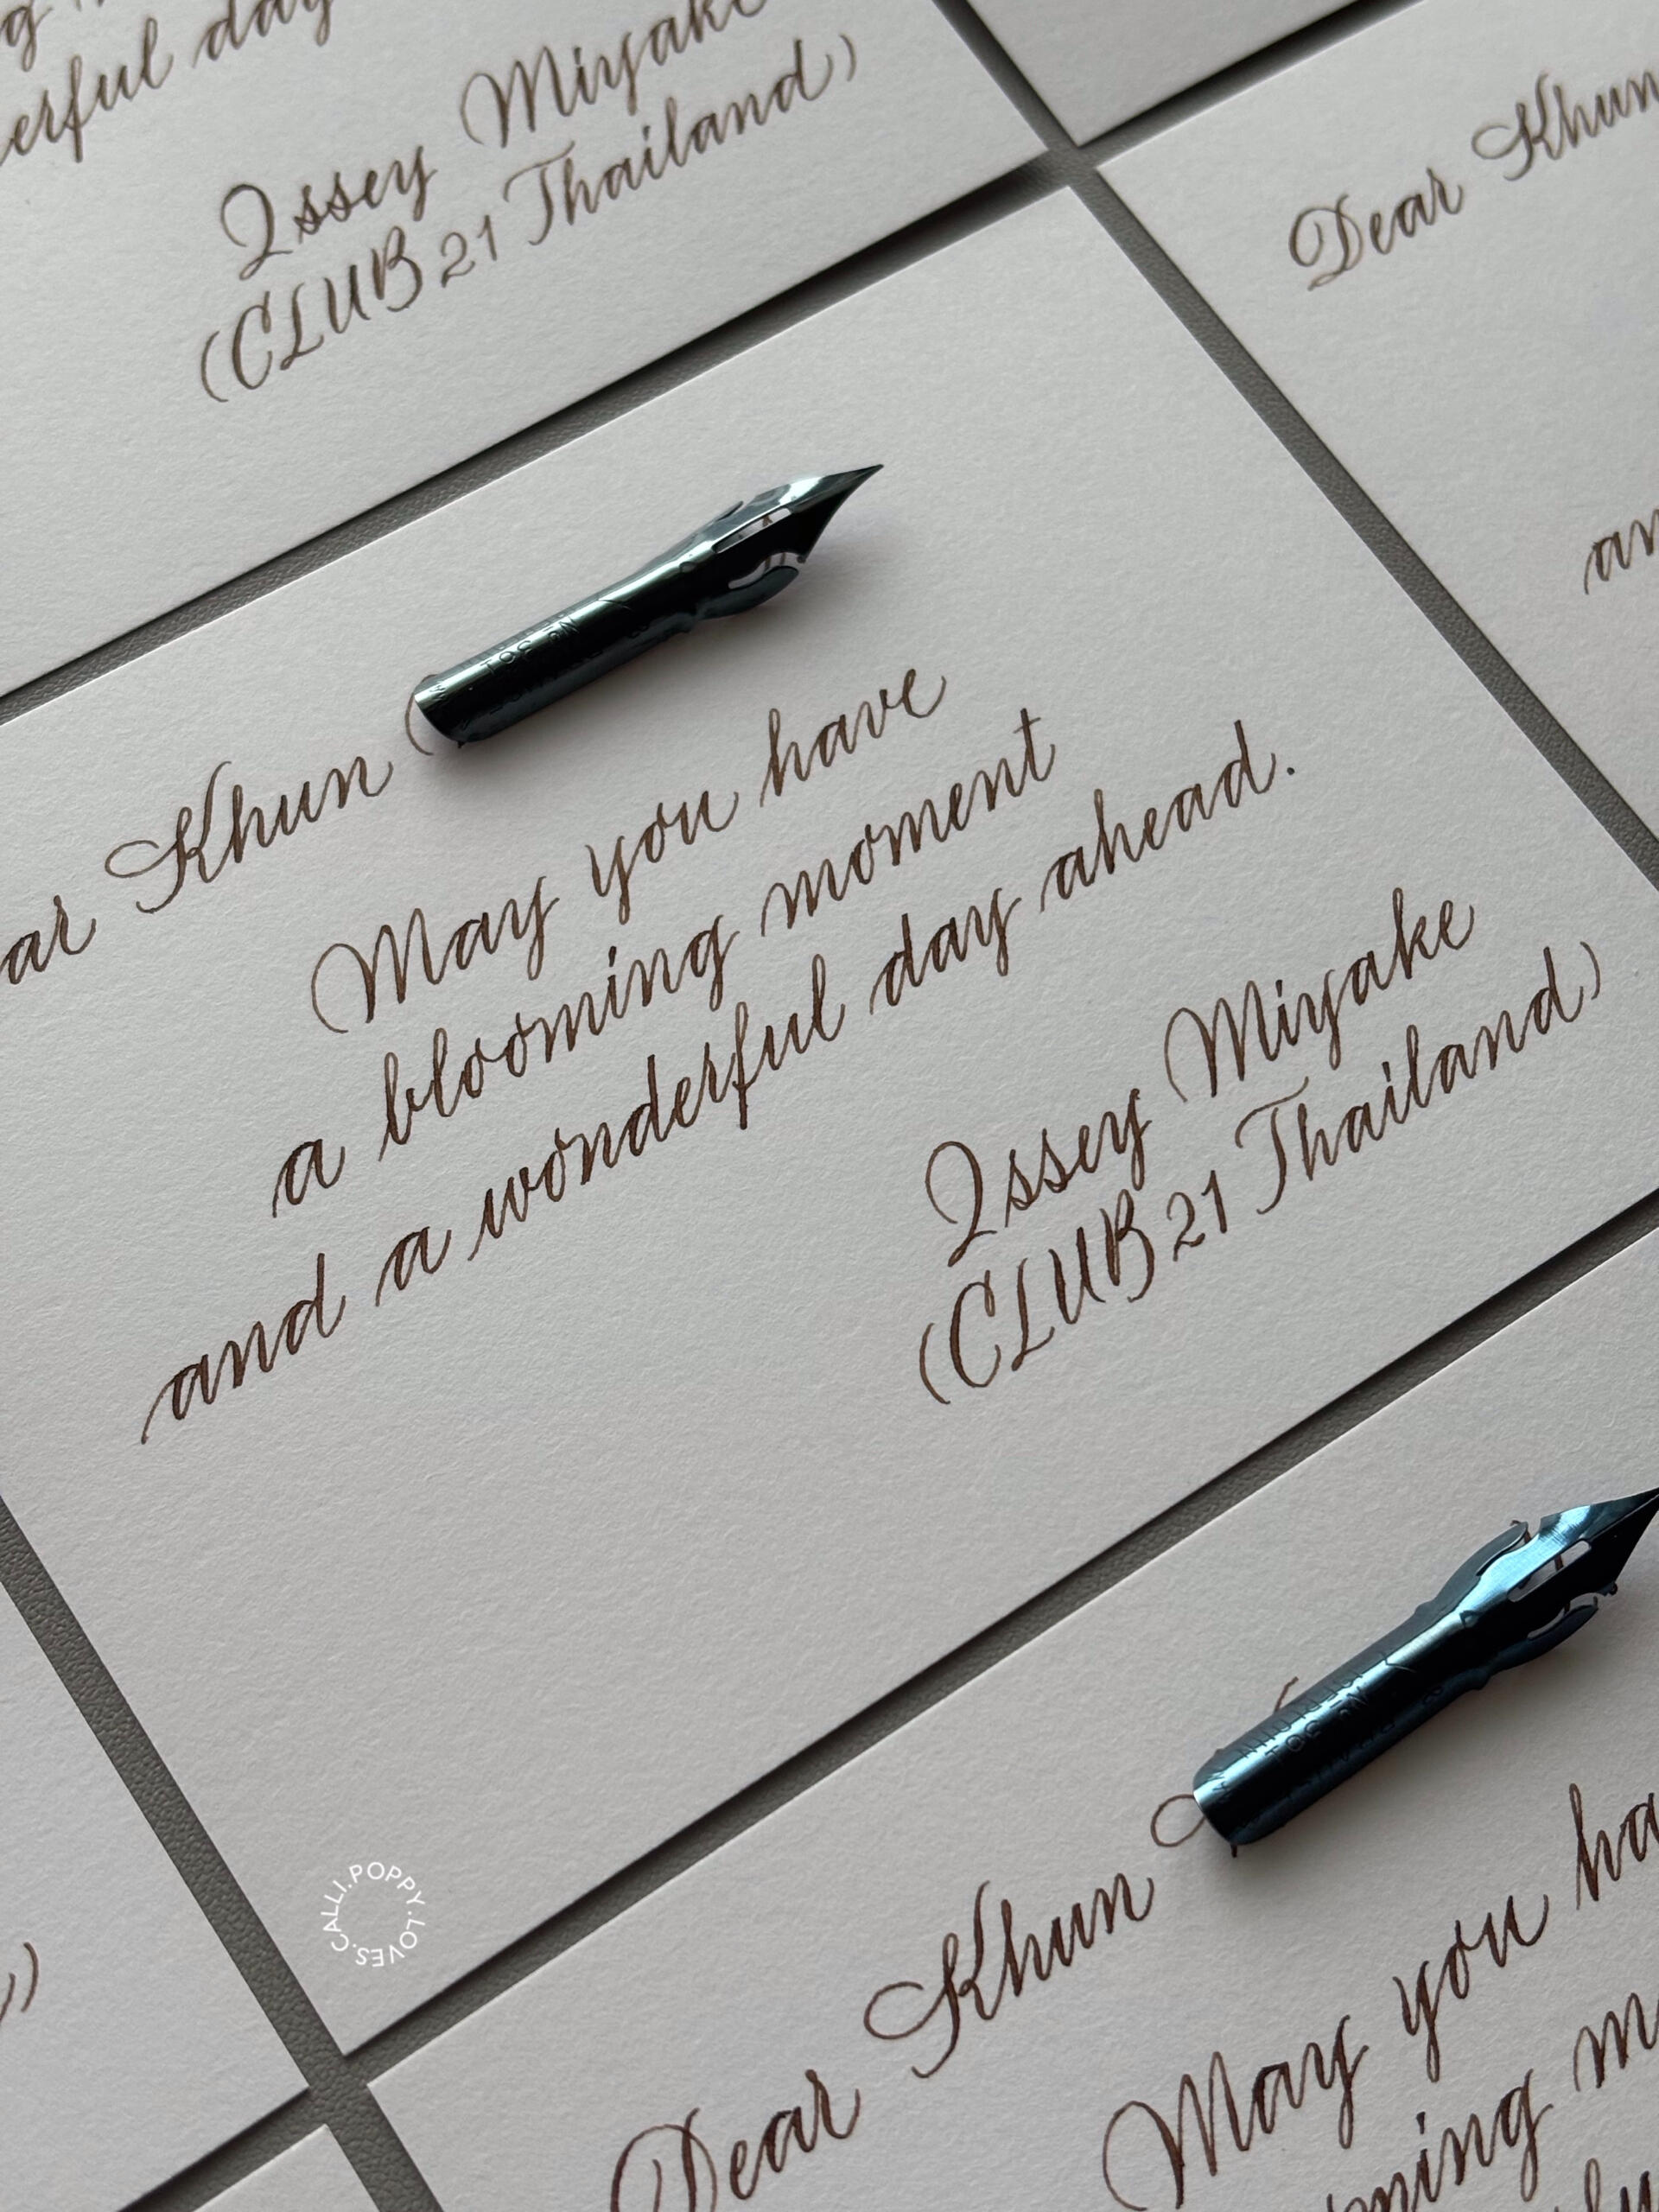 g
erful day
Issey Miyake
(CLUB 21 Thailand)
Dear Khun
an
ar Khun
May you have
a blooming moment
and a wonderful day ahead.
Issey Miyake
(CLUB 21 Thailand)
)
Dear Khun
May you ha
oming m
CALLI.POPPY.LOVES.